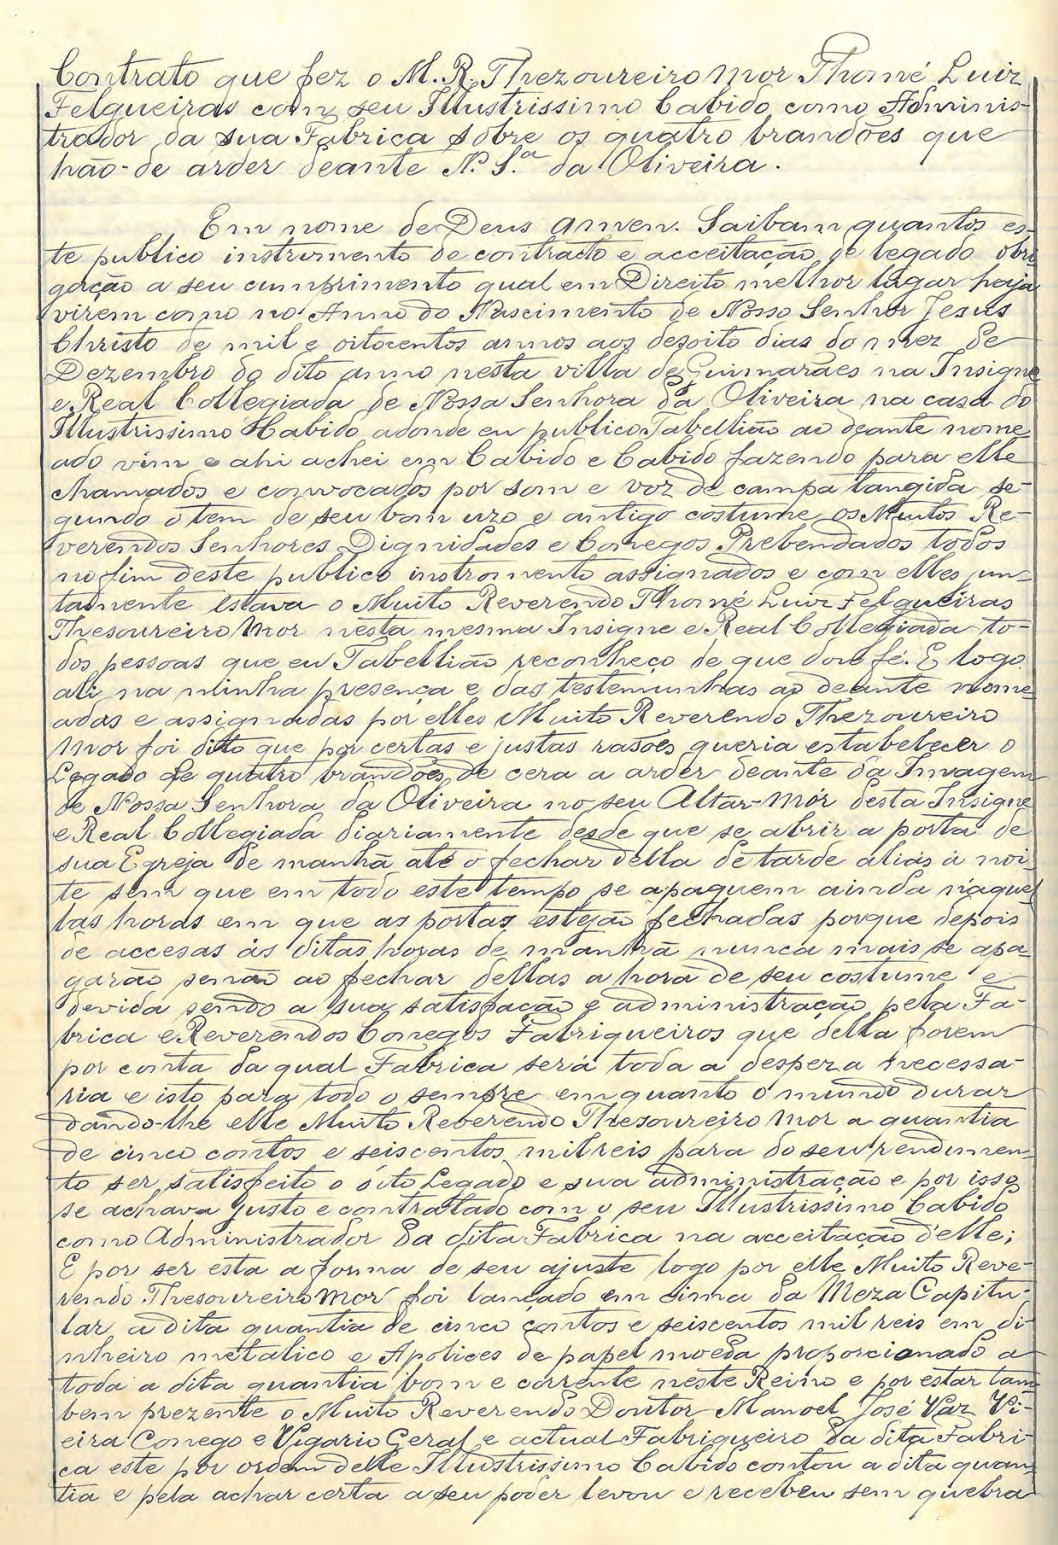 Contrato que fez o M. R. Thezoureiro Mor Thomé Luiz
Felgueiras com seu Illustrissimo Cabido como Adminis-
trador da sua Fabrica sobre os quatro brandões que
hão-de arder deante N. S.ª da Oliveira.
Em nome de Deus Amen. Saibam quantos es-
te publico instromento de contracto e acceitação de legado obri
gação a seu cumprimento qual em Direito melhor lugar haja
virem como no Anno do Nascimento de Nosso Senhor Jesus
Christo de mil e oitocentos annos aos desoito dias do mez de
Dezembro do dito anno nesta villa de Guimarães na Insigne
e Real Collegiada de Nossa Senhora da Oliveira na casa do
Illustrissimo Habido adonde eu publico Tabellião ao deante nome
ado vim e ahi achei em Cabido e Cabido fazendo para elle
chamados e convocados por som e voz de campa tangida se-
gundo o tem de seu bom uzo e antigo costume os Muitos Re-
verendos Senhores Dignidades e Conegos Prebendados todos
no fim deste publico instromento assignados e com elles jun-
tamente estava o Muito Reverendo Thomé Luiz Felgueiras
Thesoureiro Mor nesta mesma Insigne e Real Collegiada to-
dos pessoas que eu Tabellião reconheço de que dou fé. E logo
ahi na minha presença e das testemunhas ao deante nome
adas e assignadas por elles Muito Reverendo Thezoureiro
Mor foi dito que por certas e justas rasões queria estabelecer o
Legado de quatro brandões de cera a arder deante da Imagem
de Nossa Senhora da Oliveira no seu Altar-Mór desta Insigne
e Real Collegiada diariamente desde que se abrir a porta de
sua Egreja de manhã até o fechar della de tarde aliás á noi
te sem que em todo este tempo se apaguem ainda n'aquel
las horas em que as portas estejão fechadas porque depois
de accesas ás ditas horas de manhã nunca mais se apa-
garão senão ao fechar dellas a hora de seu costume e
devida sendo a sua satisfação e administração pela Fa-
brica e Reverendos Conegos Fabriqueiros que della forem
por conta da qual Fabrica será toda a despeza necessa-
ria e isto para todo o sempre emquanto o mundo durar
dando-lhe elle Muito Reverendo Thesoureiro Mor a quantia
de cinco contos e seiscentos mil reis para do seu rendimen-
to ser satisfeito o dito Legado e sua administração e por isso
se achava justo e contratado com o seu Illustrissimo Cabido
como Administrador da dita Fabrica na acceitação d'elle;
E por ser esta a forma de seu ajuste logo por elle Muito Reve-
rendo Thesoureiro Mor foi lançado em cima da Meza Capitu-
lar a dita quantia de cinco contos e seiscentos mil reis em di-
nheiro metalico e Apolices de papel moeda proporcionado a
toda a dita quantia bom e corrente neste Reino e por estar tam
bem prezente o Muito Reverendo Doutor Manoel José Vaz Vi-
eira Conego e Vigario Geral e actual Fabriqueiro da dita Fabri-
ca este por ordem delle Illustrissimo Cabido contou a dita quan-
tia e pela achar certa a seu poder levou e recebeu sem quebra